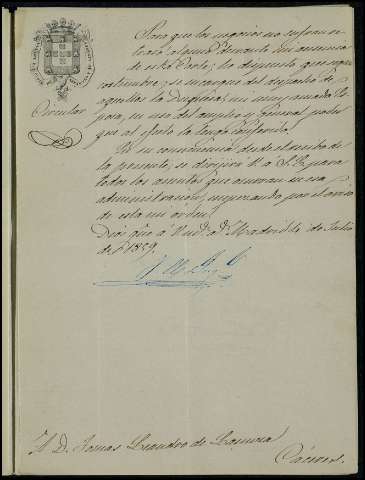 Para que los negocios no sufran re-
traso alguno durante mi ausencia
de esta Corte, he dispuesto que segun
costumbre, se encargue del despacho de
aquellos la Duquesa, mi muy amada Es-
posa, en uso del amplio y general poder
que al efecto la tengo conferido.
Circular
En su consecuencia desde el recibo de
la presente, se dirigirá V. a S.E. para
todos los asuntos que ocurran en esa
administracion, empezando por el aviso
de esta mi orden.
Dios gue. a V. ms. as. Madrid de Julio
de 1859.
Sr. D. Tomas Leandro de
Cáceres.